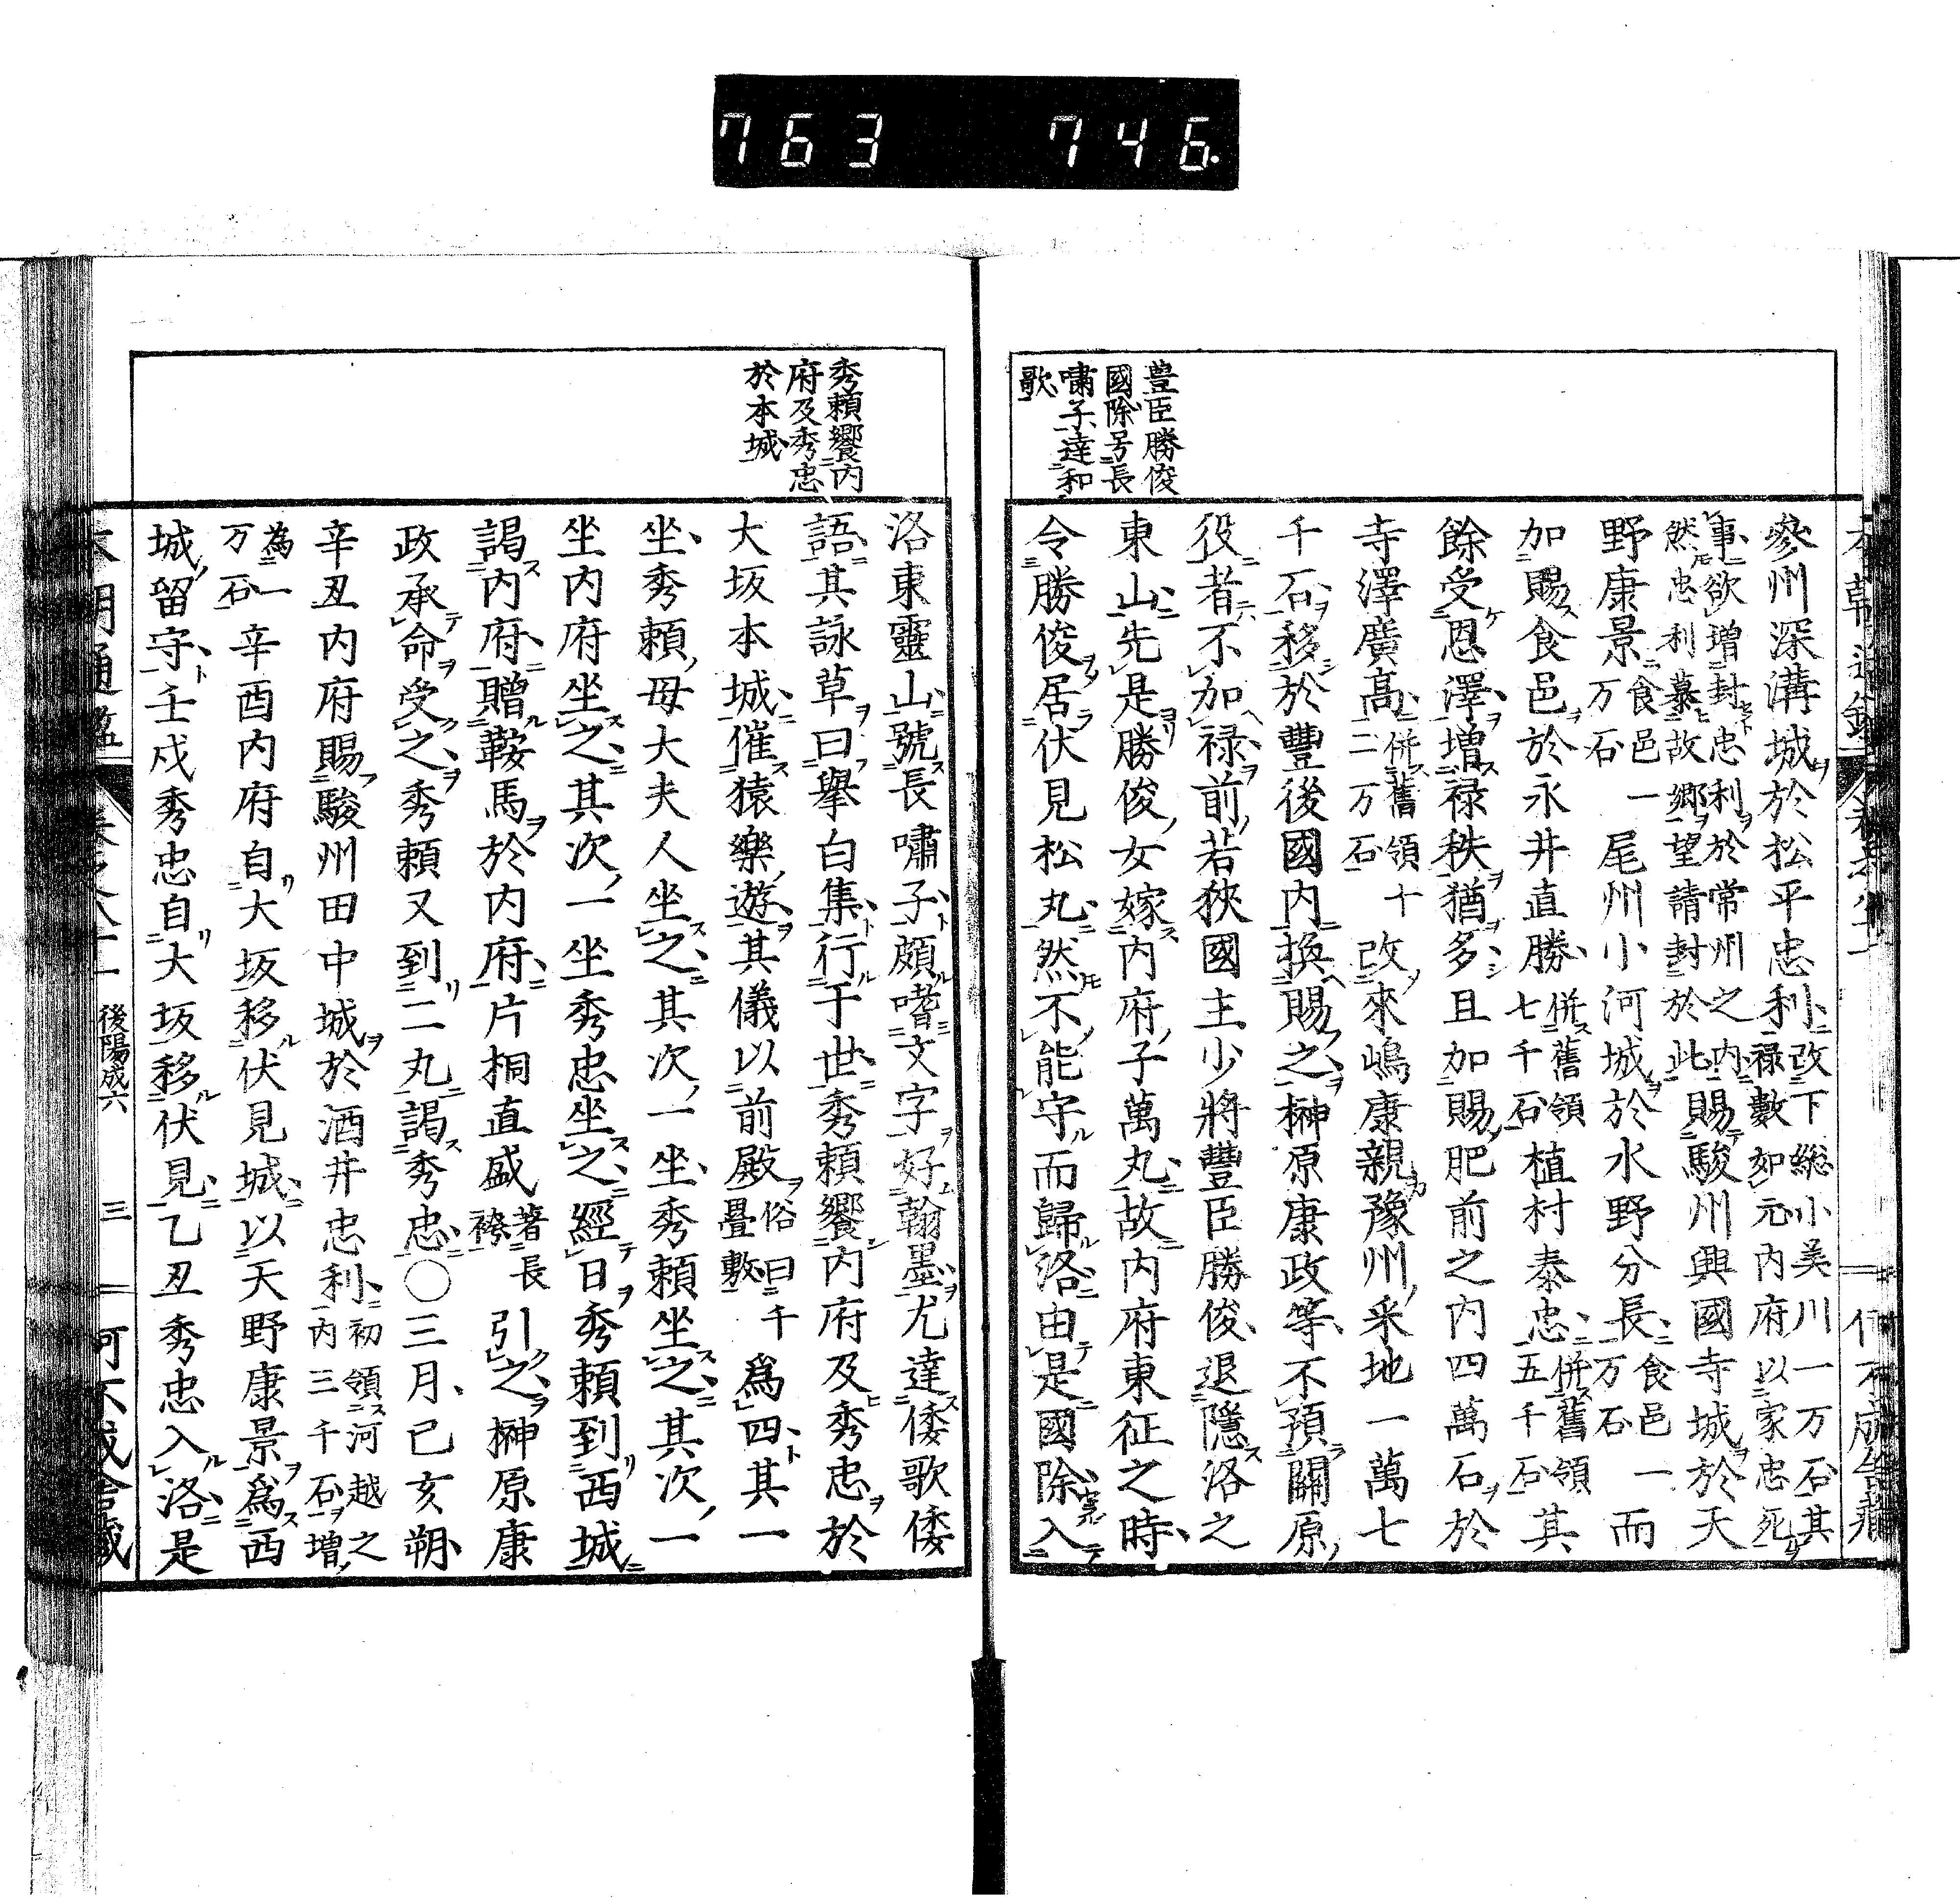 763 746.
豊臣勝俊
國除号長
嘯子達和
歌
參州深溝城於松平忠利改下総小美川一万石其禄數如元內府以家忠死
事欲増封忠利於常州之内然忠利慕故郷望請封於此賜駿州興國寺城於天
野康景食邑一万石尾州小河城於水野分長食邑一万石而
加賜食邑於永井直勝併舊領七千石植村泰忠併舊領五千石其
餘受恩澤増禄秩猶多且加賜肥前之内四萬石於
寺澤廣髙併舊領十二万石改來嶋康親豫州采地一萬七
千石移於豐後國内換賜之榊原康政等不預關原
役者不加禄前若狹國主少將豐臣勝俊退隱洛之
東山先是勝俊女嫁内府子萬丸故内府東征之時
令勝俊居伏見松丸然不能守而歸洛由是國除入
秀頼饗内
府及秀忠
於本城
洛東靈山號長嘯子頗嗜文字好翰墨尤達倭歌倭
語其詠草曰擧白集行于世秀頼饗内府及秀忠於
大坂本城催猿樂遊其儀以前殿俗曰千疊敷爲四其一
坐秀頼母大夫人坐之其次一坐秀頼坐之其次一
坐内府坐之其次一坐秀忠坐之經日秀頼到西城
謁内府贈鞍馬於内府片桐直盛著長袴引之榊原康
政承命受之秀頼又到二丸謁秀忠○三月己亥朔
辛丑内府賜駿州田中城於酒井忠利初領河越之内三千石増
為一万石辛酉内府自大坂移伏見城以天野康景爲西
城留守壬戌秀忠自大坂移伏見乙丑秀忠入洛是
後陽成六 三